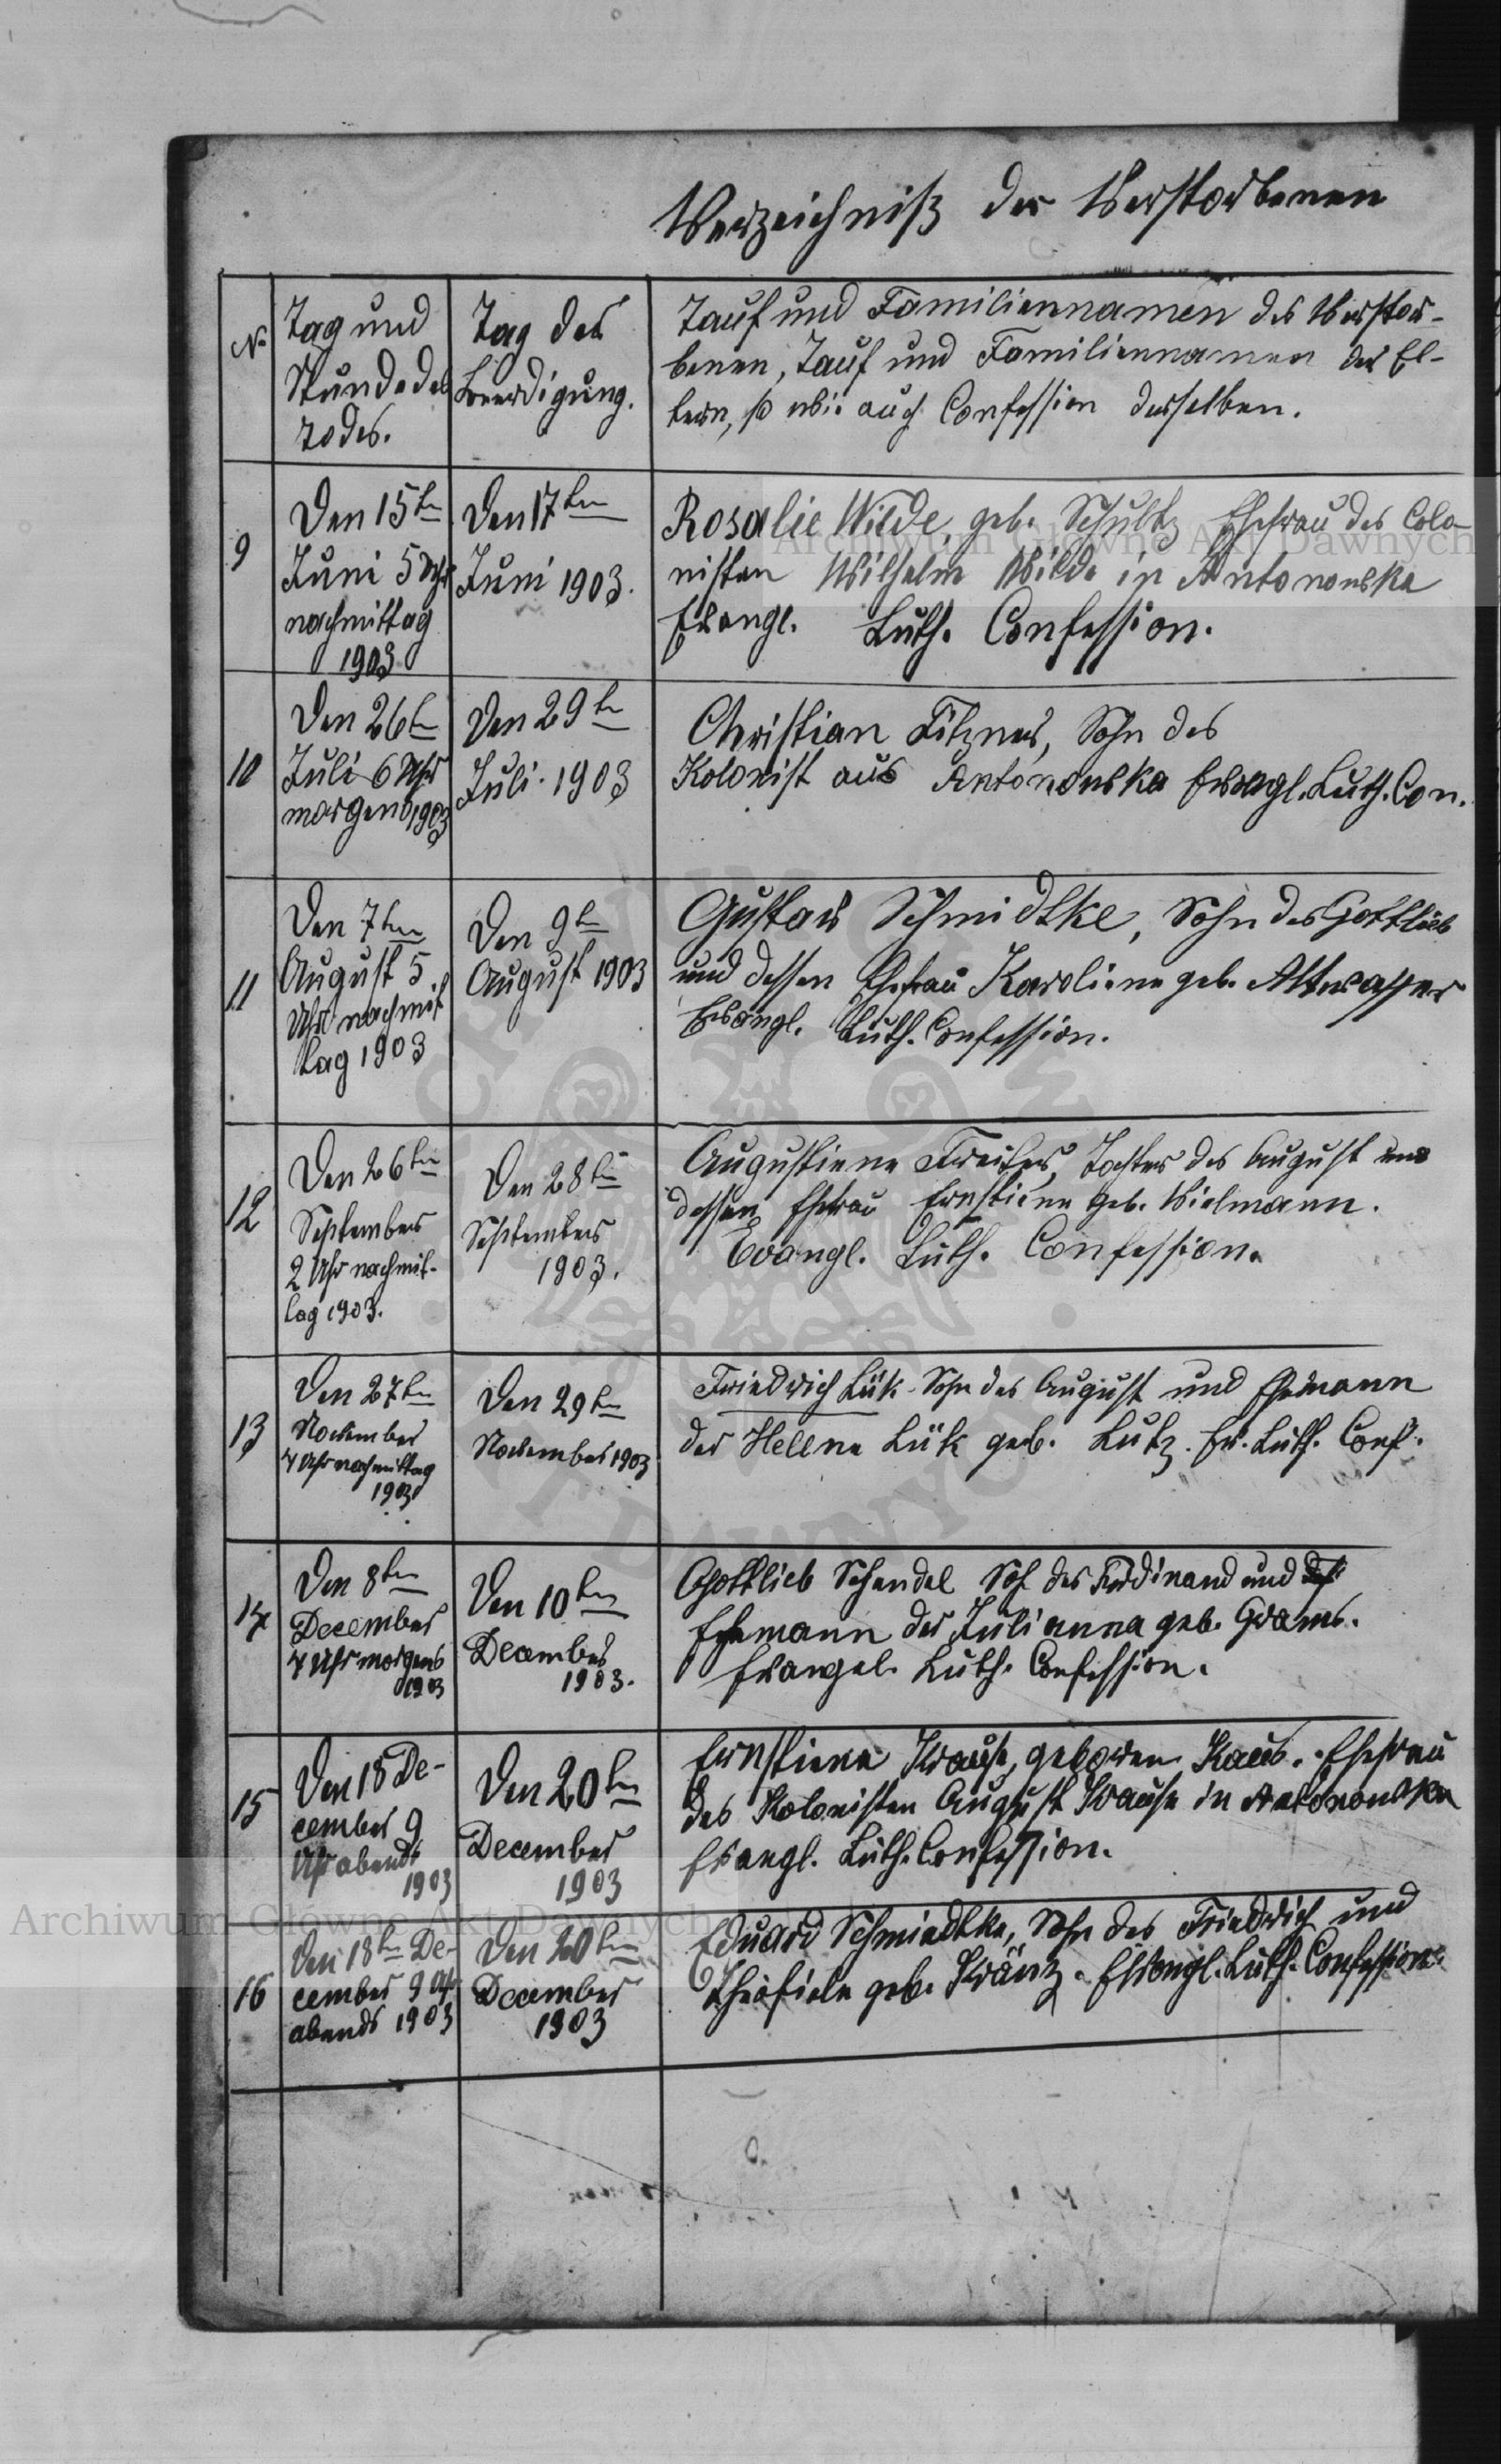 Verzeichniß der Verstorbenen
No
Tag und
Stunde des
Todes.
Tag der
Beerdigung.
Tauf und Familiennamen des Verstor-
benen, Tauf und Familiennamen der El-
tern, so wie auch Confession derselben.
9
Den 15ten
Juni 5 Uhr
nachmittag
1903
Den 17ten
Juni 1903.
Rosalie Wilde, geb. Schultz Ehefrau des Colo-
nisten Wilhelm Wilde in Antonowka
Evangl. Luth. Confession.
10
Den 26ten
Juli 6 Uhr
morgens 1903
Den 29ten
Juli. 1903
Christian Fitzner, Sohn des
Kolonist aus Antonowka Evangl. Luth. Con.
11
Den 7ten
August 5
Uhr nachmit
tag 1903
Den 9ten
August 1903
Gustav Schmidtke, Sohn des Gottlieb
und dessen Ehefrau Karoliene geb. Altwasser
Evangl. Luth. Confession.
12
Den 26ten
September
2 Uhr nachmit-
tag 1903.
Den 28ten
September
1903.
Augustiene Freiter, Tochter des August und
dessen Ehefrau Ernstiene geb. Wielmann.
Evangl. Luth. Confession.
13
Den 27ten
November
4 Uhr nachmittag
1903
Den 29ten
November 1903
Friedrich Lük Sohn des August und Ehemann
der Hellene Lük geb. Lutz. Ev. Luth. Conf.
14
Den 8ten
December
4 Uhr morgens
1903
Den 10ten
December
1903.
Gottlieb Schendel Soh des Ferdinand und
Ehemann der Julianna geb. Grams.
Evangel. Luth. Confession.
15
Den 18 De-
cember 9
Uhr abends
1903
Den 20ten
December
1903
Ernstiene Krause, geboren Ehefrau
des Kolonisten August Krause in Antonowka
Evangl. Luth. Confession.
16
Den 18ten De-
cember 9 Uhr
abends 1903
Den 20ten
December
1903
Eduard Schmiedtke, Sohn des Friedrich und
geb. Kränz. Evangl. Luth. Confession.
Archiwum Główne Akt Dawnych
Archiwum Główne Akt Dawnych